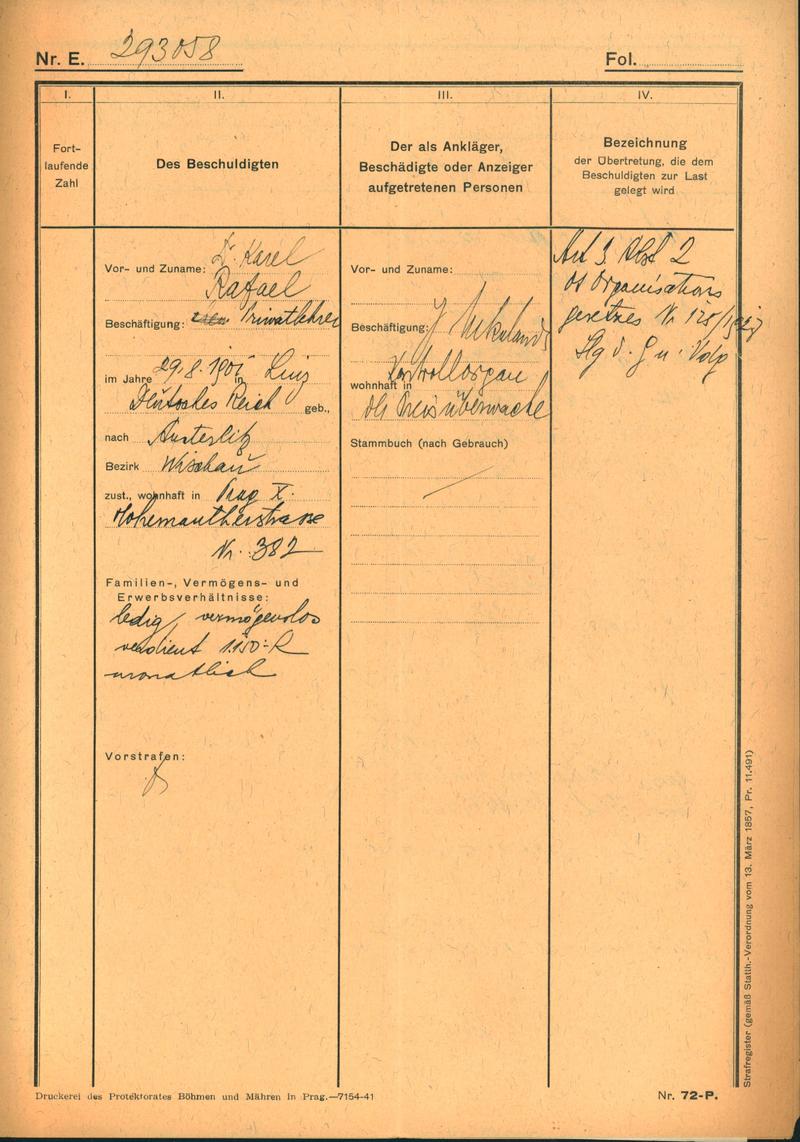 Nr. E. 293058
Fol.
I.
II.
III.
IV.
Fort-
laufende
Zahl
Des Beschuldigten
Der als Ankläger,
Beschädigte oder Anzeiger
aufgetretenen Personen
Bezeichnung
der Übertretung, die dem
Beschuldigten zur Last
gelegt wird
Dr. Karel
Vor- und Zuname:
Rafael
Beschäftigung: Privatlehrer
im Jahre 29.8.1901 in Linz
Deutsches Reich geb.,
nach Austerlitz
Bezirk Wischau
zust., wohnhaft in Prag X.
Hohemautherstrasse
Nr. 382
Familien-, Vermögens- und
Erwerbsverhältnisse:
ledig, vermögenslos
verdient 1.150.- K
monatlich
Vorstrafen:
Vor- und Zuname:
Beschäftigung:
Kontrollorgan
wohnhaft in
der Preisüberwache
Stammbuch (nach Gebrauch)
Art 3 Abst 2
des Organisations
gesetzes Nr 125/1927
Slg d. G u. Vdg
Strafregister (gemäß Statth.-Verordnung vom 13. März 1857, Pr. 11.491)
Druckerei des Protektorates Böhmen und Mähren in Prag.—7154-41
Nr. 72-P.